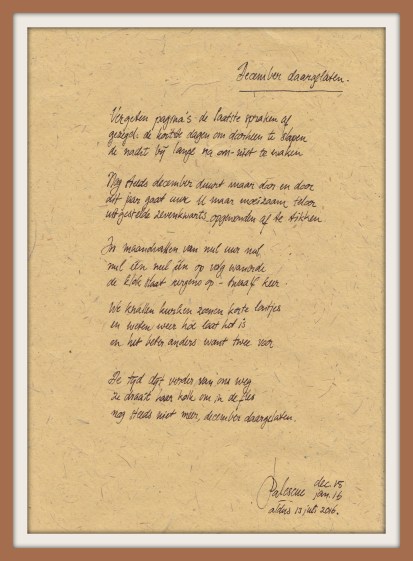 December daargelaten.
Vergeten pagina's de laatste spraken af
gezegd: de kortste dagen om doorheen te slapen
de nacht bij lange na om niet te waken
Nog steeds december duurt maar door en door
dit jaar gaat uur u maar moeizaam teloor
uitgestelde zevenkwarts opgewonden af te tikken
In maandvaden van nul uur nul
nul één nul één op volg
de klok slaat nergens op - twaalf keer
We knallen kurken zoemen korte lontjes
en weten weer hoe laat het is
en het beter anders want twee voor
De tijd tijgt verder van ons weg
ze draait haar om in de fles
nog steeds niet meer, december daargelaten.
dec. 15
jan. 16
aldus 13 juli 2016.